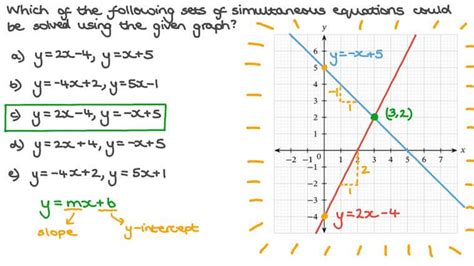 Which of the following sets of simultaneous equations could
be solved using the given graph?
a) y=2x-4, y=x+5
b) y=-4x+2, y=5x-1
c) y=2x-4, y=-x+5
d) y=2x+4, y=-x+5
e) y=-4x+2, y=5x+1
y=mx+b
slope
y-intercept
y
y=-x+5
6
5
4
3
2
1
-1
1
(3,2)
x
-2 -1 0 1 2 3 4 5 6 7
-1
-2
-3
-4
2
1
y=2x-4